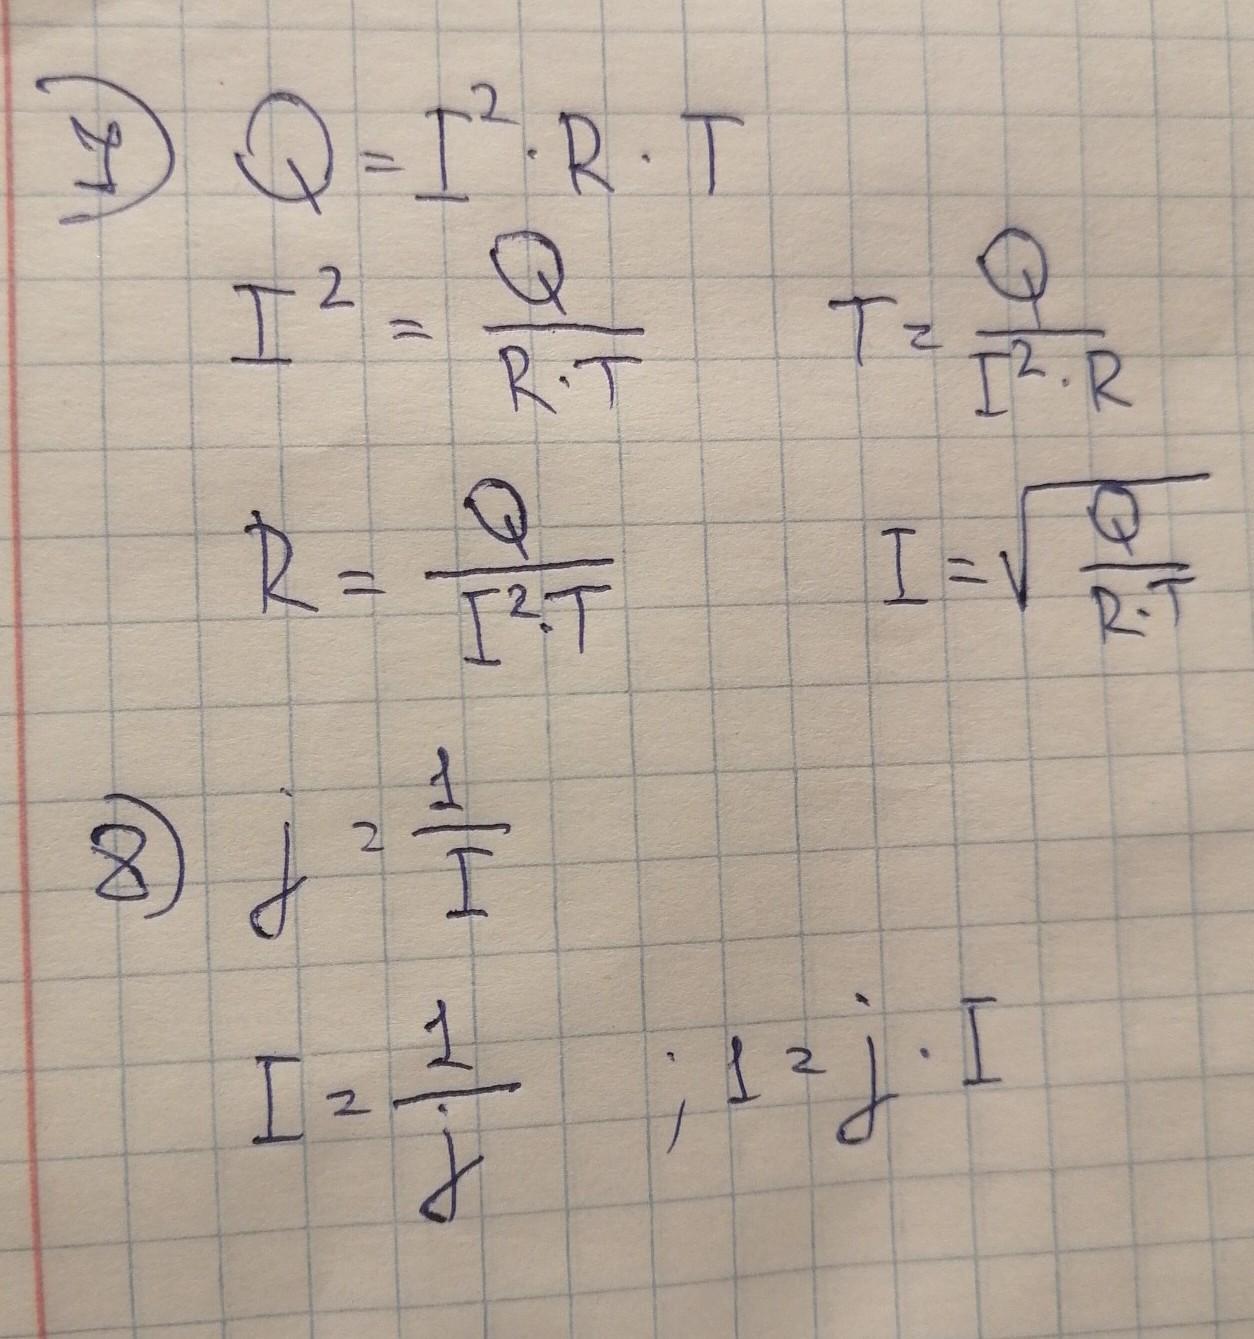 7) Q = I² · R · T
I² = Q / (R · T) T = Q / (I² · R)
R = Q / (I² · T) I = √(Q / (R · T))
8) j = 1 / I
I = 1 / j ; 1 = j · I